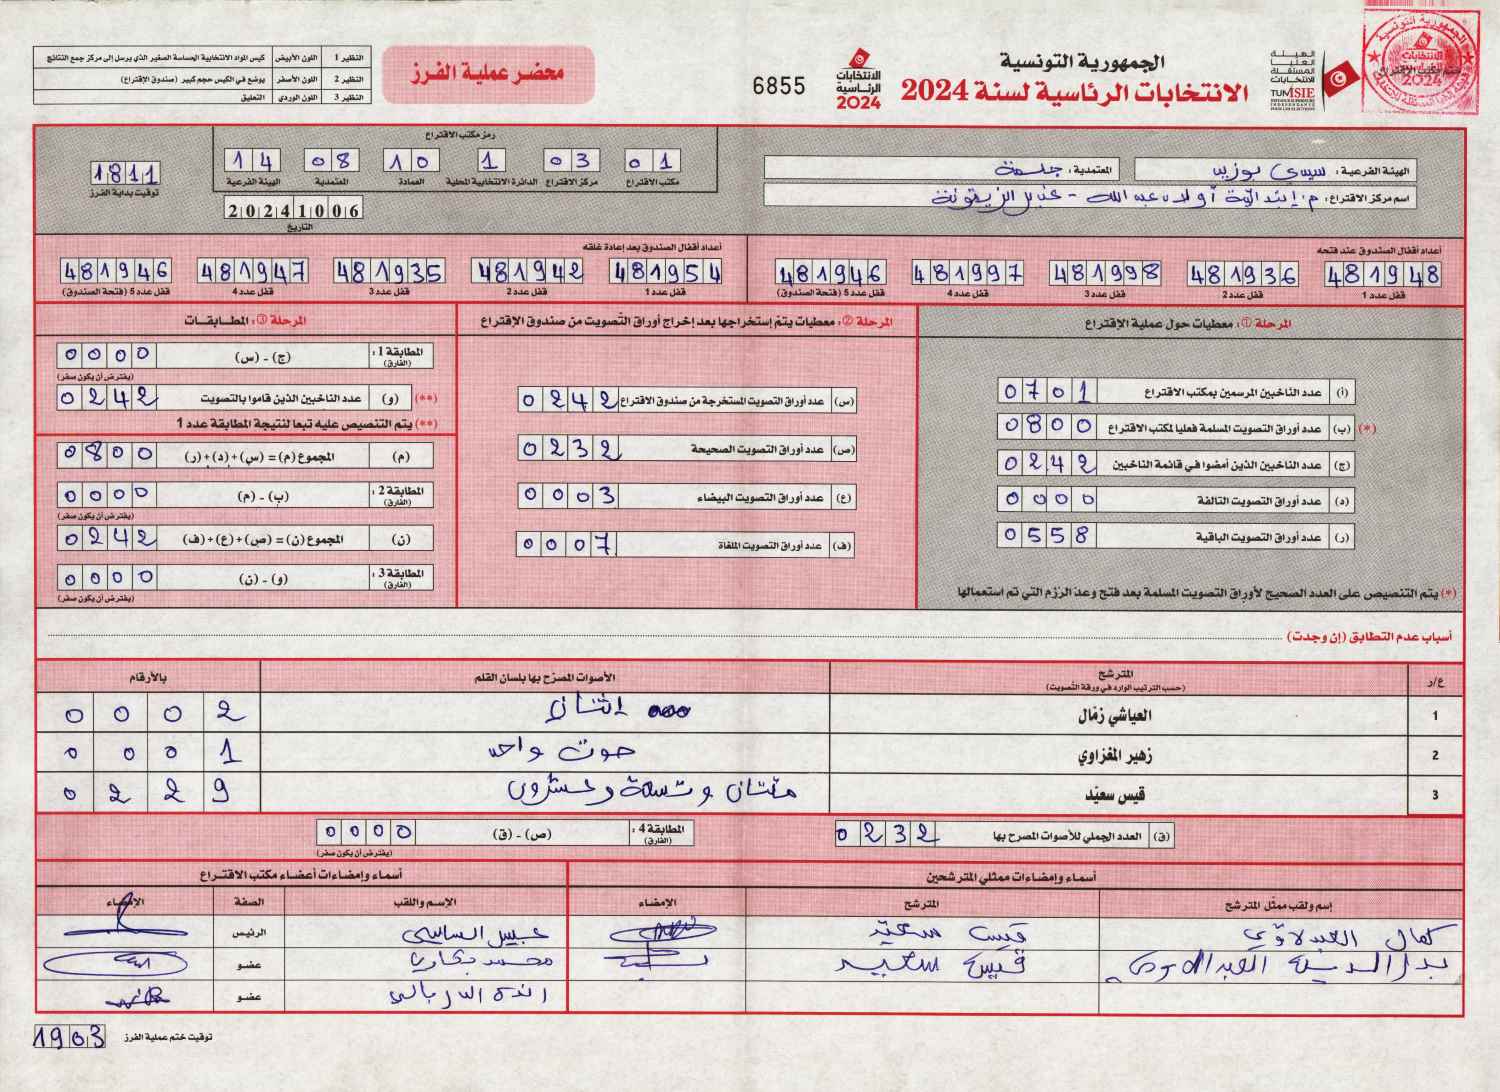 الجمهورية التونسية
الانتخابات الرئاسية لسنة 2024
الهيئة العليا المستقلة للانتخابات
TUNISIE
الانتخابات الرئاسية 2024
6855
محضر عملية الفرز
النظير 1 اللون الأبيض كيس المواد الانتخابية الحساسة الصغير الذي يرسل إلى مركز جمع النتائج
النظير 2 اللون الأصفر يوضع في الكيس حجم كبير (صندوق الإقتراع)
النظير 3 اللون الوردي التعليق
الهيئة الفرعية: سيدي بوزيد المعتمدية: جلمة
اسم مركز الاقتراع: م. إبتدائية أولاد عبد الله - غدير الزيتونة
رمز مكتب الاقتراع
14 08 10 1 03 01
الهيئة الفرعية المعتمدية العمادة الدائرة الانتخابية المحلية مركز الاقتراع مكتب الاقتراع
20241006
التاريخ
1811
توقيت بداية الفرز
أعداد أقفال الصندوق عند فتحه
481948 481936 481998 481997 481946
قفل عدد 1 قفل عدد 2 قفل عدد 3 قفل عدد 4 قفل عدد 5 (فتحة الصندوق)
أعداد أقفال الصندوق بعد إعادة غلقه
481954 481942 481935 481947 481946
قفل عدد 1 قفل عدد 2 قفل عدد 3 قفل عدد 4 قفل عدد 5 (فتحة الصندوق)
المرحلة ①: معطيات حول عملية الإقتراع
(أ) عدد الناخبين المرسمين بمكتب الاقتراع 0701
(*) (ب) عدد أوراق التصويت المسلمة فعليا لمكتب الاقتراع 0800
(ج) عدد الناخبين الذين أمضوا في قائمة الناخبين 0242
(د) عدد أوراق التصويت التالفة 0000
(ر) عدد أوراق التصويت الباقية 0558
(*) يتم التنصيص على العدد الصحيح لأوراق التصويت المسلمة بعد فتح وعدّ الرزم التي تم استعمالها
المرحلة ②: معطيات يتمّ إستخراجها بعد إخراج أوراق التّصويت من صندوق الإقتراع
(س) عدد أوراق التصويت المستخرجة من صندوق الاقتراع 0242
(ص) عدد أوراق التصويت الصحيحة 0232
(ع) عدد أوراق التصويت البيضاء 0003
(ف) عدد أوراق التصويت الملغاة 0007
المرحلة ③: المطـابـقـات
المطابقة 1: (الفارق) (ج) - (س) 0000
(يفترض أن يكون صفر)
(**) (و) عدد الناخبين الذين قاموا بالتصويت 0242
(**) يتم التنصيص عليه تبعا لنتيجة المطابقة عدد 1
(م) المجموع (م) = (س)+(د)+(ر) 0800
المطابقة 2: (الفارق) (ب) - (م) 0000
(يفترض أن يكون صفر)
(ن) المجموع (ن) = (ص)+(ع)+(ف) 0242
المطابقة 3: (الفارق) (و) - (ن) 0000
(يفترض أن يكون صفر)
أسباب عدم التطابق (إن وجدت)
ع/ر المترشح الأصوات المصرّح بها بلسان القلم بالأرقام
(حسب الترتيب الوارد في ورقة التّصويت)
1 العياشي زمّال إثنان 0002
2 زهير المغزاوي صوت واحد 0001
3 قيس سعيّد مئتان وتسعة وعشرون 0229
(ق) العدد الجملي للأصوات المصرح بها 0232
المطابقة 4: (الفارق) (ص) - (ق) 0000
(يفترض أن يكون صفر)
أسماء وإمضاءات ممثلي المترشحين
إسم ولقب ممثّل المترشح المترشح الإمضاء
كمال العبدلاوي قيس سعيّد
بدر الدين قيس سعيد
أسماء وإمضاءات أعضاء مكتب الاقتراع
الإسم واللقب الصفة الإمضاء
الرئيس
محمد عضو
عضو
توقيت ختم عملية الفرز 1903